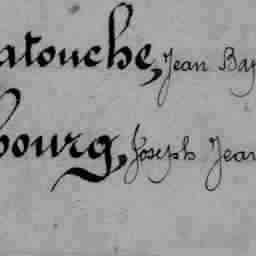 atouche, Jean Bap
bourg, Joseph Jean